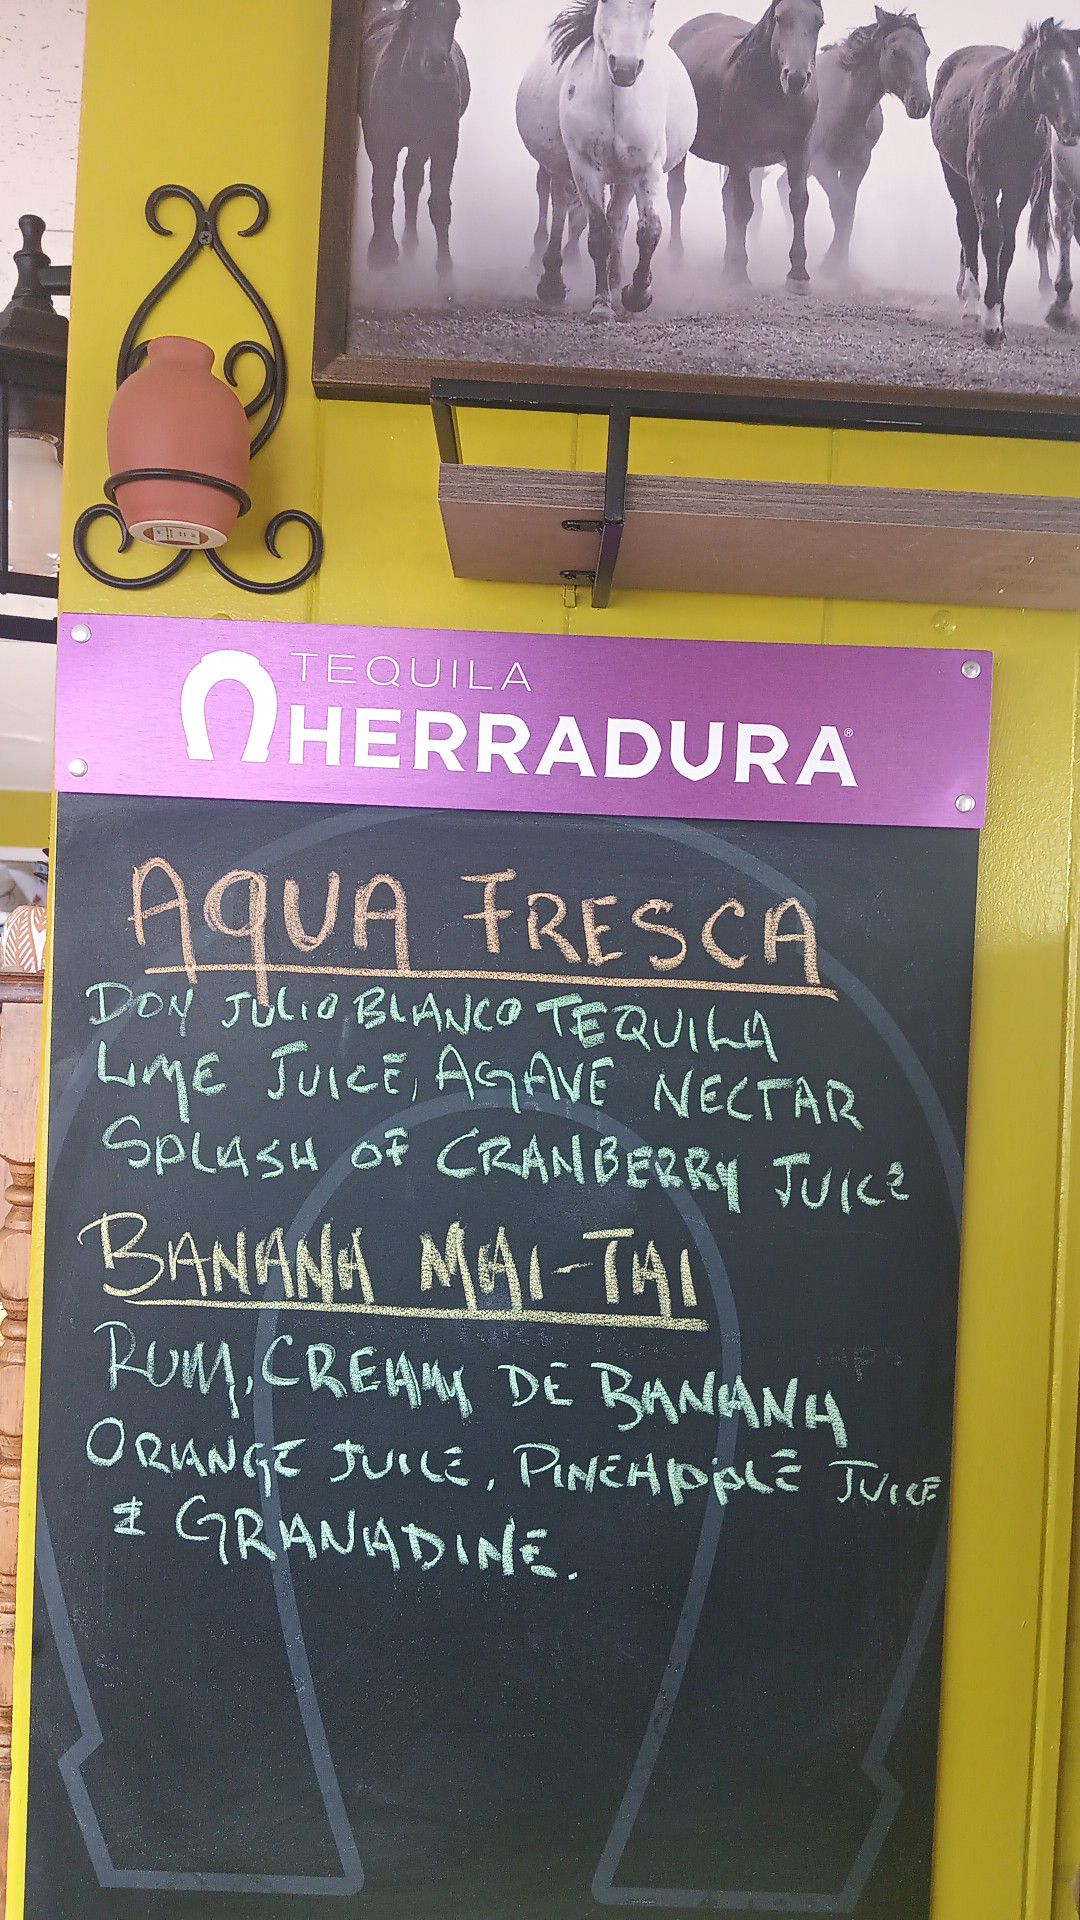 TEQUILA
HERRADURA®
AQUA FRESCA
DON JULIO BLANCO TEQUILA
LIME JUICE, AGAVE NECTAR
SPLASH OF CRANBERRY JUICE
BANANA MAI-TAI
RUM, CREAM DE BANANA
ORANGE JUICE, PINEAPPLE JUICE
& GRANADINE.